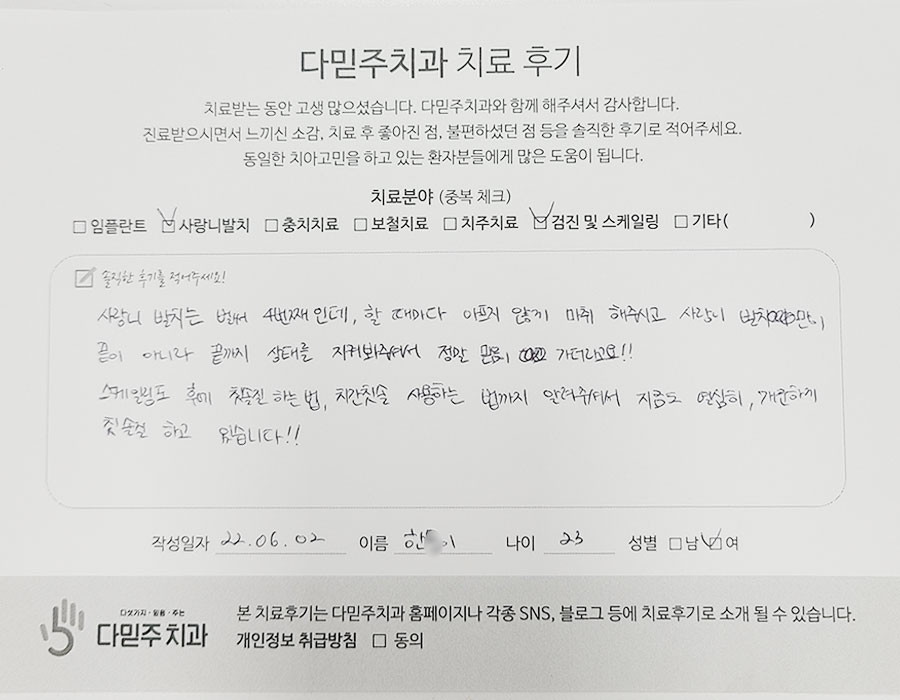 다믿주치과 치료 후기
치료받는 동안 고생 많으셨습니다. 다믿주치과와 함께 해주셔서 감사합니다.
진료받으시면서 느끼신 소감, 치료 후 좋아진 점, 불편하셨던 점 등을 솔직한 후기로 적어주세요.
동일한 치아고민을 하고 있는 환자분들에게 많은 도움이 됩니다.
치료분야 (중복 체크)
□ 임플란트 ☑ 사랑니발치 □ 충치치료 □ 보철치료 □ 치주치료 ☑ 검진 및 스케일링 □ 기타( )
솔직한 후기를 적어주세요!
사랑니 발치는 벌써 4번째인데, 할 때마다 아프지 않게 마취 해주시고 사랑니 발치만,
끝이 아니라 끝까지 상태를 지켜봐주셔서 정말 믿음이 가더라고요!!
스케일링도 후에 칫솔질 하는 법, 치간칫솔 사용하는 법까지 알려주셔서 지금도 열심히, 개운하게
칫솔질 하고 있습니다!!
작성일자 22.06.02 이름 한 이 나이 23 성별 □ 남 ☑ 여
다섯가지·믿음·주는
다믿주치과
본 치료후기는 다믿주치과 홈페이지나 각종 SNS, 블로그 등에 치료후기로 소개 될 수 있습니다.
개인정보 취급방침 □ 동의